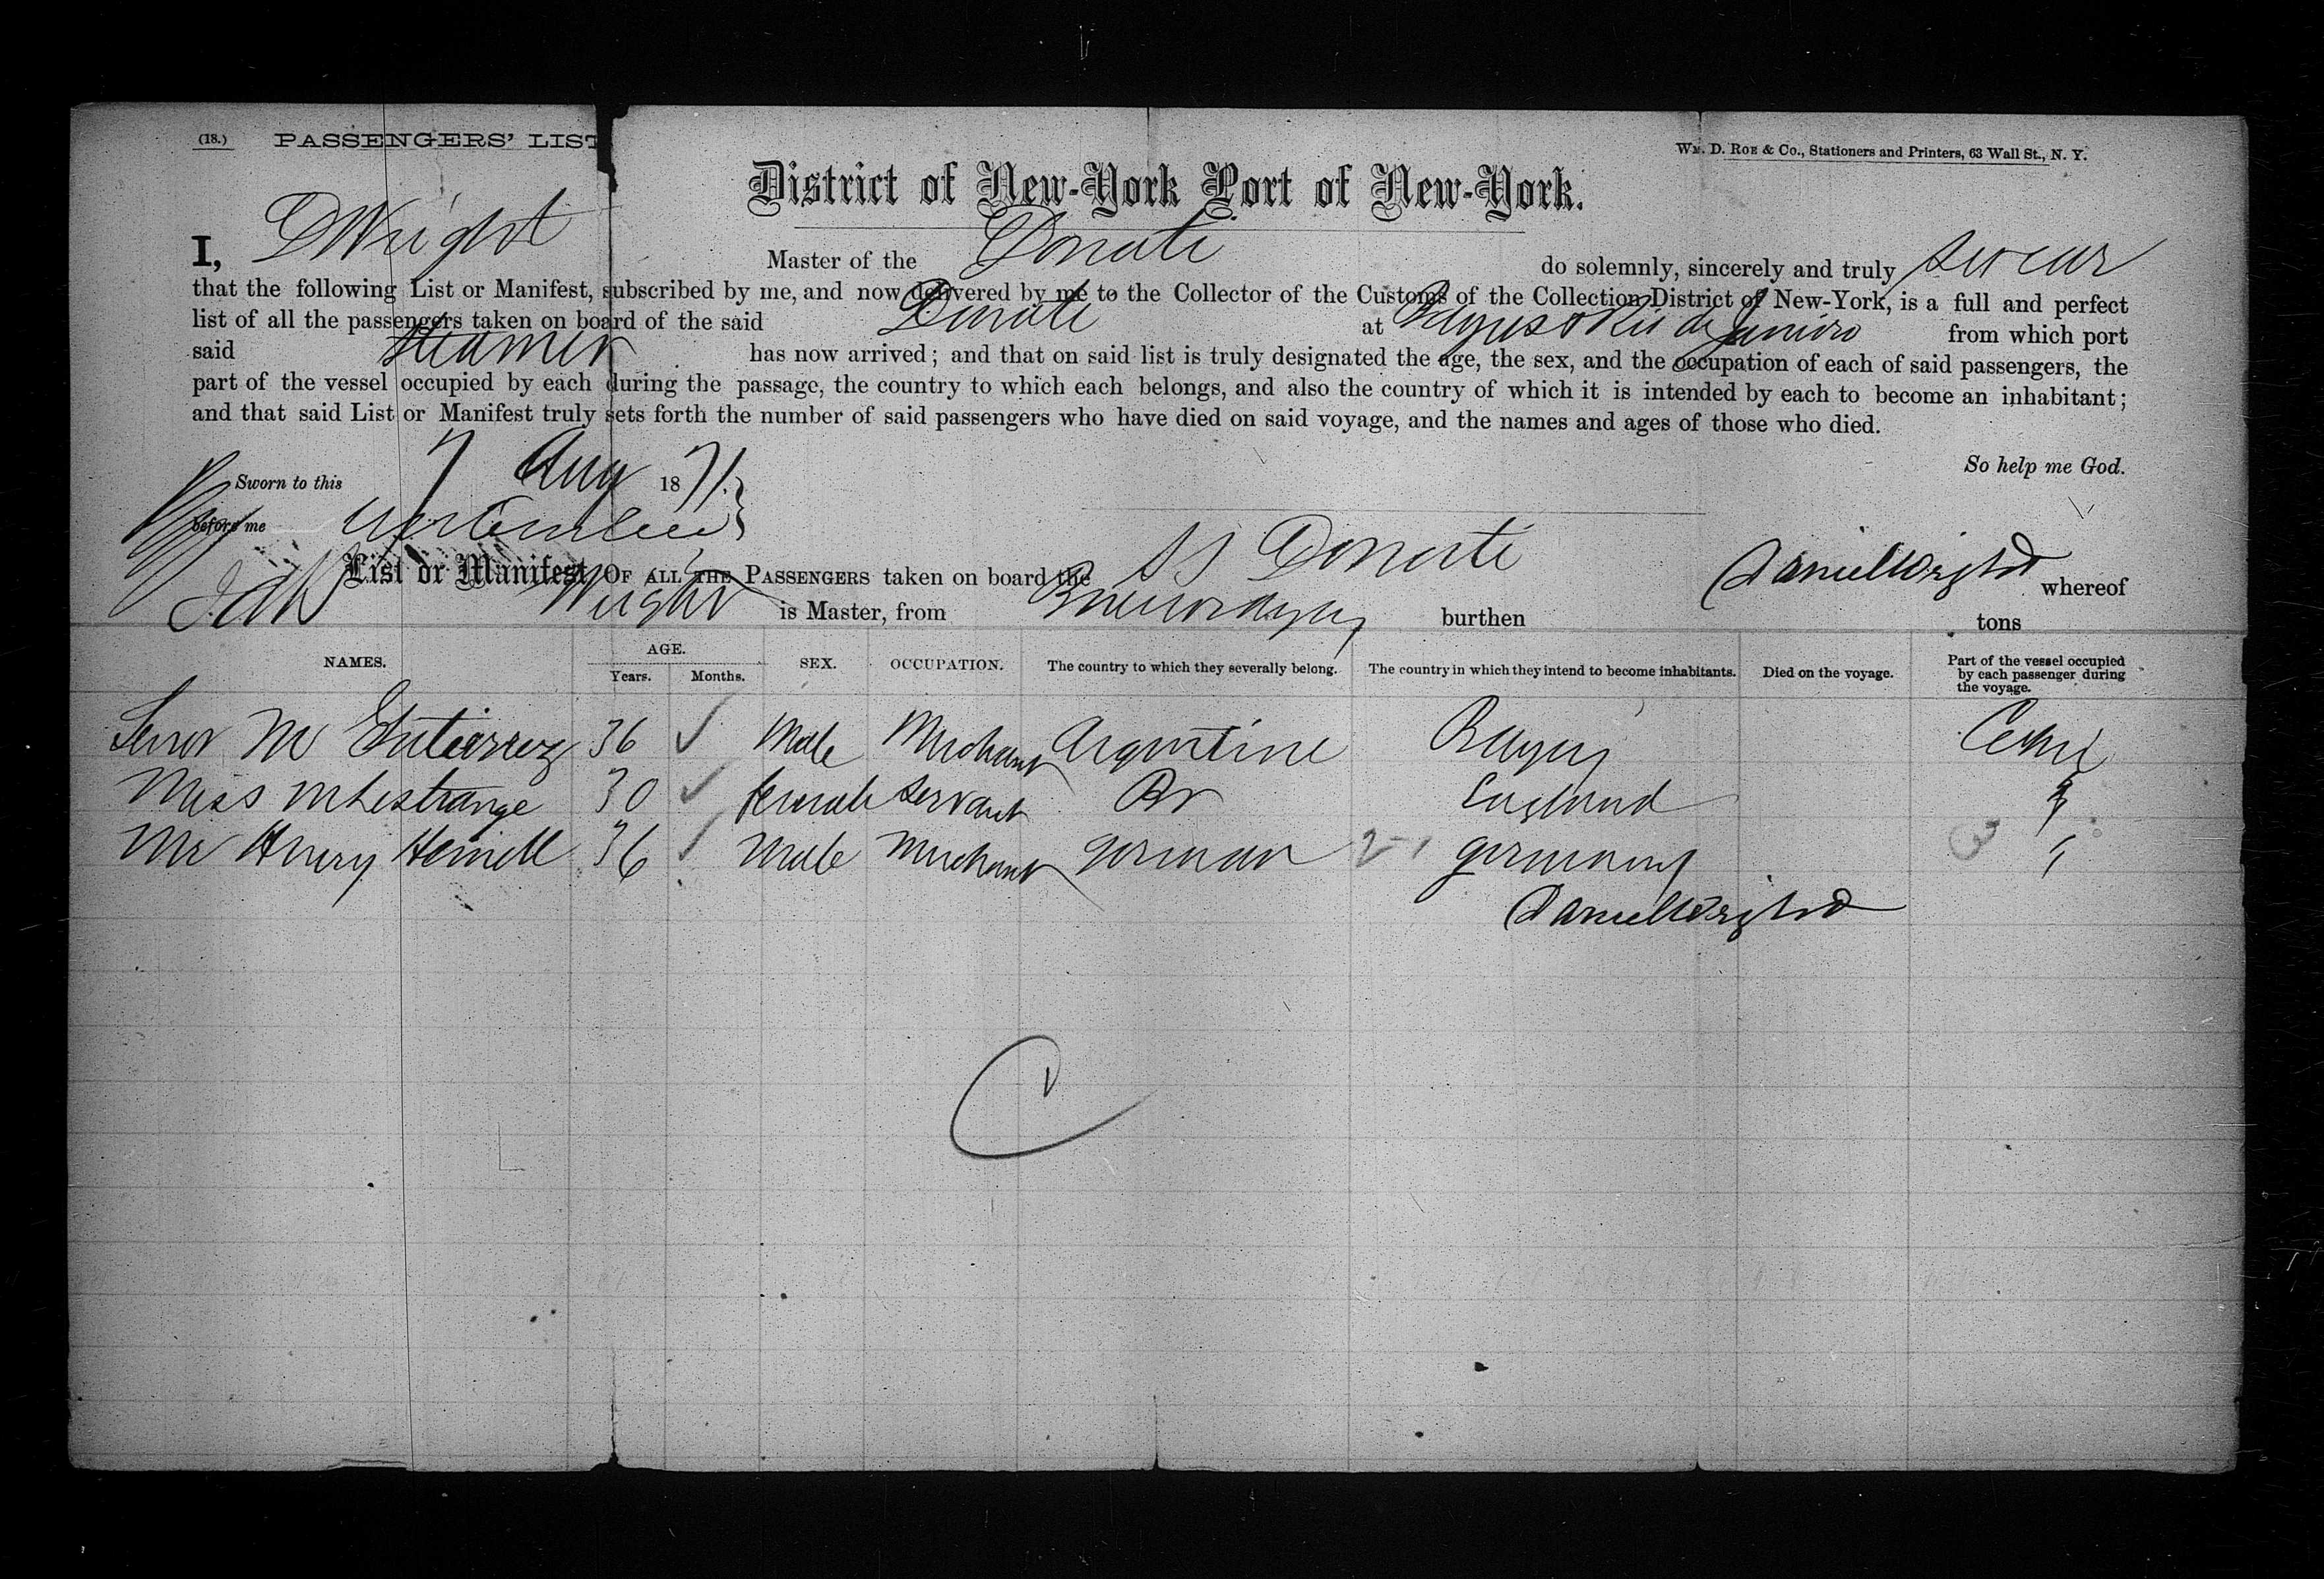 (18.) PASSENGERS' LIST
Wm. D. Roe & Co., Stationers and Printers, 63 Wall St., N. Y.
District of New-York Port of New-York.
I, D Wright Master of the Donati do solemnly, sincerely and truly swear
that the following List or Manifest, subscribed by me, and now delivered by me to the Collector of the Customs of the Collection District of New-York, is a full and perfect
list of all the passengers taken on board of the said Donati at Rio de Janiero from which port
said Steamer has now arrived; and that on said list is truly designated the age, the sex, and the occupation of each of said passengers, the
part of the vessel occupied by each during the passage, the country to which each belongs, and also the country of which it is intended by each to become an inhabitant;
and that said List or Manifest truly sets forth the number of said passengers who have died on said voyage, and the names and ages of those who died.
So help me God.
Sworn to this 7 Aug 1871.
before me
List or Manifest OF ALL THE PASSENGERS taken on board the SS Donati Daniel Wright whereof
Wright is Master, from burthen tons
NAMES. AGE. Years. Months. SEX. OCCUPATION. The country to which they severally belong. The country in which they intend to become inhabitants. Died on the voyage. Part of the vessel occupied by each passenger during the voyage.
Senor M Gutierrez 36 ✓ Male Merchant Argentine
Miss M Lestrange 30 ✓ female Servant Br England
Mr Henry 36 ✓ Male Merchant German 2-1 Germany 3
Daniel Wright
C